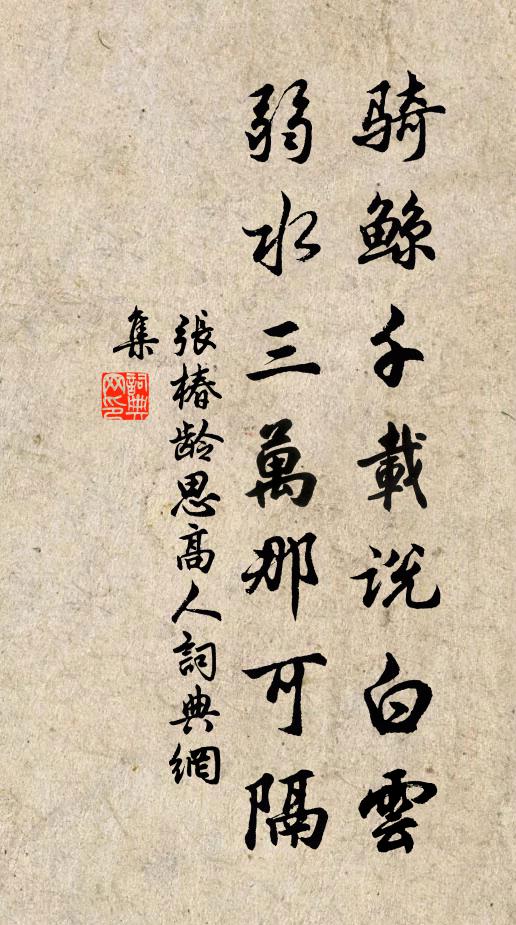 騎鯨千載説白雲
弱水三萬那可隔
張椿齡思高人詞典網
集
詞典
网印